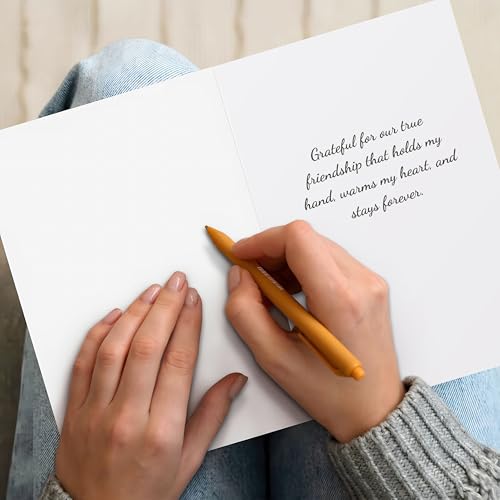 Grateful for our true
friendship that holds my
hand, warms my heart, and
stays forever.